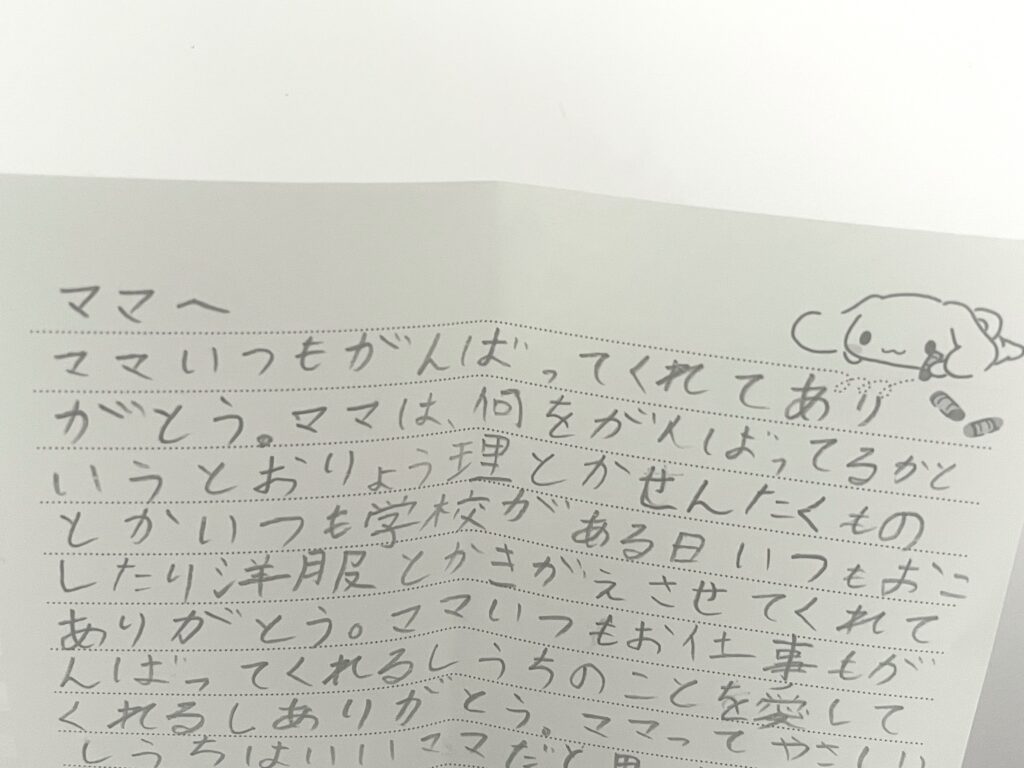 ママへ
ママいつもがんばってくれてあり
がとう。ママは、何をがんばってるかと
いうとおりょう理とかせんたくもの
とかいつも学校がある日いつもおこ
したり洋服とかきがえさせてくれて
ありがとう。ママいつもお仕事もが
んばってくれるしうちのことを愛して
くれるしありがとう。ママってやさしい
しうちはいいママだと思